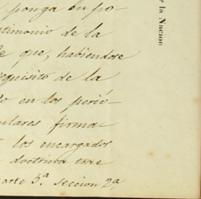 ponga en po
timonio de la
e que, habiendose
equisito de la
o en los perió
ulares firma
los encargados
doctrina
parte 5ª seccion 2ª
r la Nacion